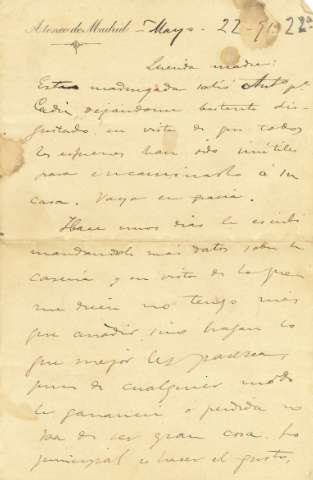 Ateneo de Madrid - Mayo - 22 - 922ª
Querida madre:
Esta madrugada salió Antº pª
Cádiz dejandome bastante dis-
gustado en vista de que todos
los esfuerzos han sido inútiles
para encaminarlo á su
casa. Vaya en gracia.
Hace unos dias le escribi
mandandole más datos sobre la
casería y en vista de lo que
me dicen no tengo más
que añadir, sino hagan lo
que mejor les parezca,
pues de cualquier modo
la ganancia o perdida no
ha de ser gran cosa. Lo
principal es hacer el gusto,